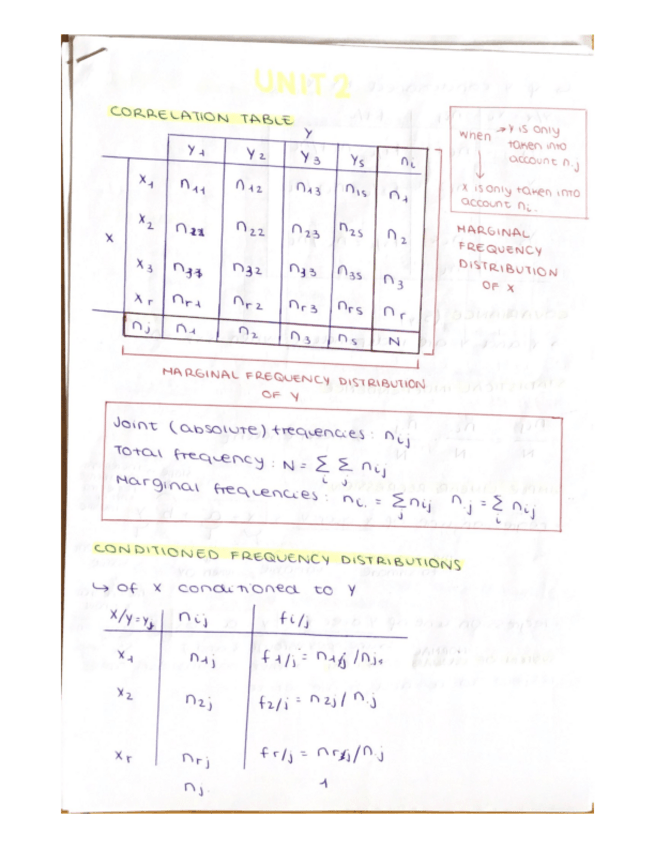 UNIT 2
CORRELATION TABLE
Y
Y1 Y2 Y3 Ys ni
X1 n11 n12 n13 n1s n1
X2 n21 n22 n23 n2s n2
X
X3 n31 n32 n33 n3s n3
Xr nr1 nr2 nr3 nrs nr
nj n1 n2 n3 ns N
when → Y is only
taken into
account n.j
↓
X is only taken into
account ni.
MARGINAL
FREQUENCY
DISTRIBUTION
OF X
MARGINAL FREQUENCY DISTRIBUTION
OF Y
Joint (absolute) frequencies: nij
Total frequency: N = Σi Σj nij
Marginal frequencies: ni. = Σj nij n.j = Σi nij
CONDITIONED FREQUENCY DISTRIBUTIONS
↳ of X conditioned to Y
X/Y=Yj nij fi/j
X1 n1j f1/j = n1j/nj.
X2 n2j f2/j = n2j/n.j
Xr nrj fr/j = nrj/n.j
nj. 1